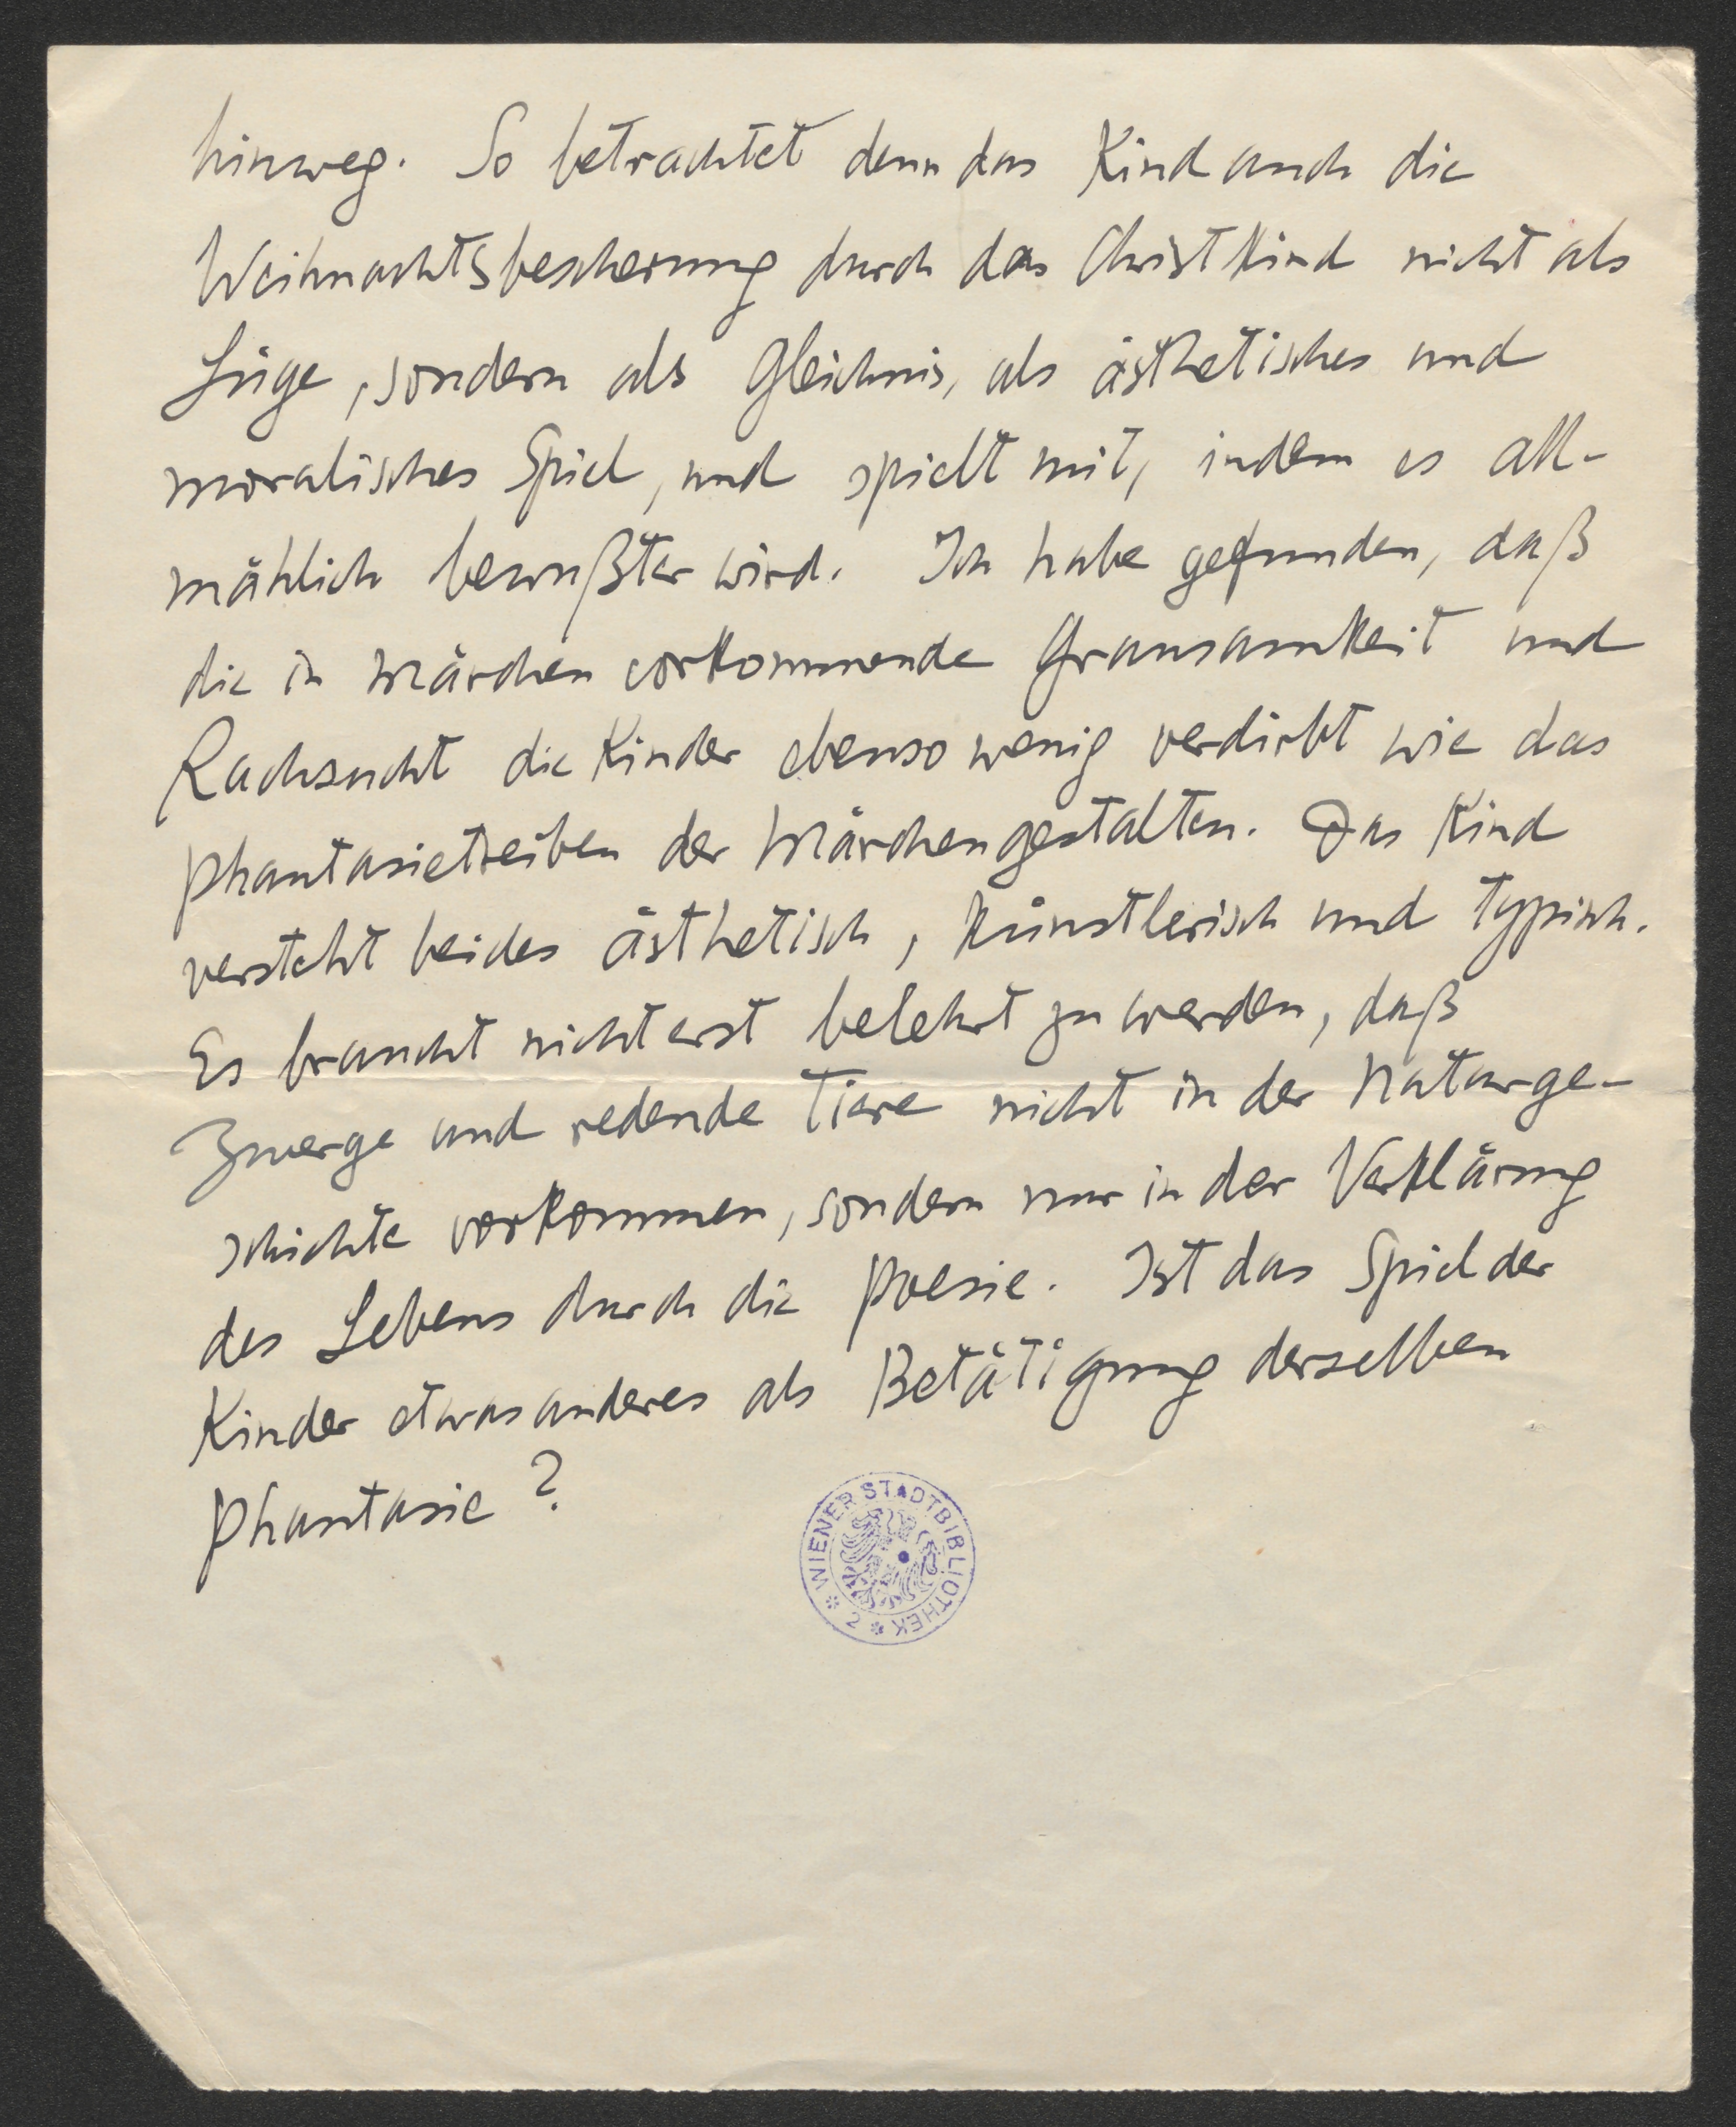 hinweg. So betrachtet denn das Kind auch die
Weihnachtsbescherung durch das Christkind nicht als
Lüge, sondern als Gleichnis, als ästhetisches und
moralisches Spiel, und spielt mit, indem es all-
mählich bewußter wird. Ich habe gefunden, daß
die in Märchen vorkommende Grausamkeit und
Rachsucht die Kinder ebenso wenig verdirbt wie das
Phantasietreiben der Märchengestalten. Das Kind
versteht beides ästhetisch, künstlerisch und typisch.
Es braucht nicht erst belehrt zu werden, daß
Zwerge und redende Tiere nicht in der Naturge-
schichte vorkommen, sondern nur in der Verklärung
des Lebens durch die Poesie. Ist das Spiel der
Kinder etwas anderes als Betätigung derselben
Phantasie?
WIENER STADTBIBLIOTHEK * 2 *